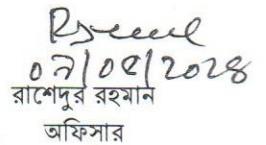 ০৭/০৫/২০২৪
রাশেদুর রহমান
অফিসার